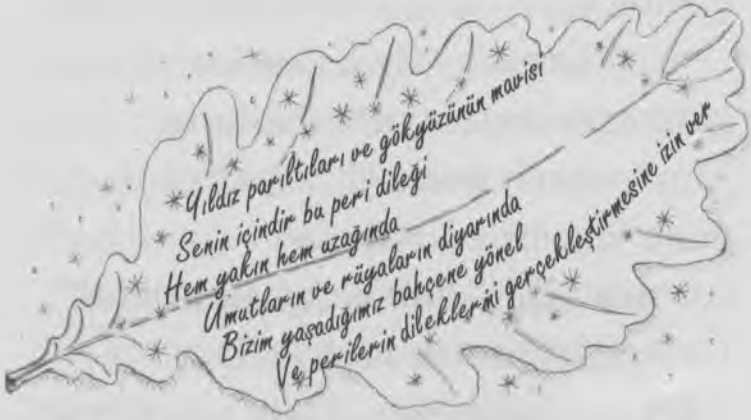 Yıldız parıltıları ve gökyüzünün mavisi
Senin içindir bu peri dileği
Hem yakın hem uzağında
Umutların ve rüyaların diyarında
Bizim yaşadığımız bahçene yönel
Ve perilerin dileklerini gerçekleştirmesine izin ver